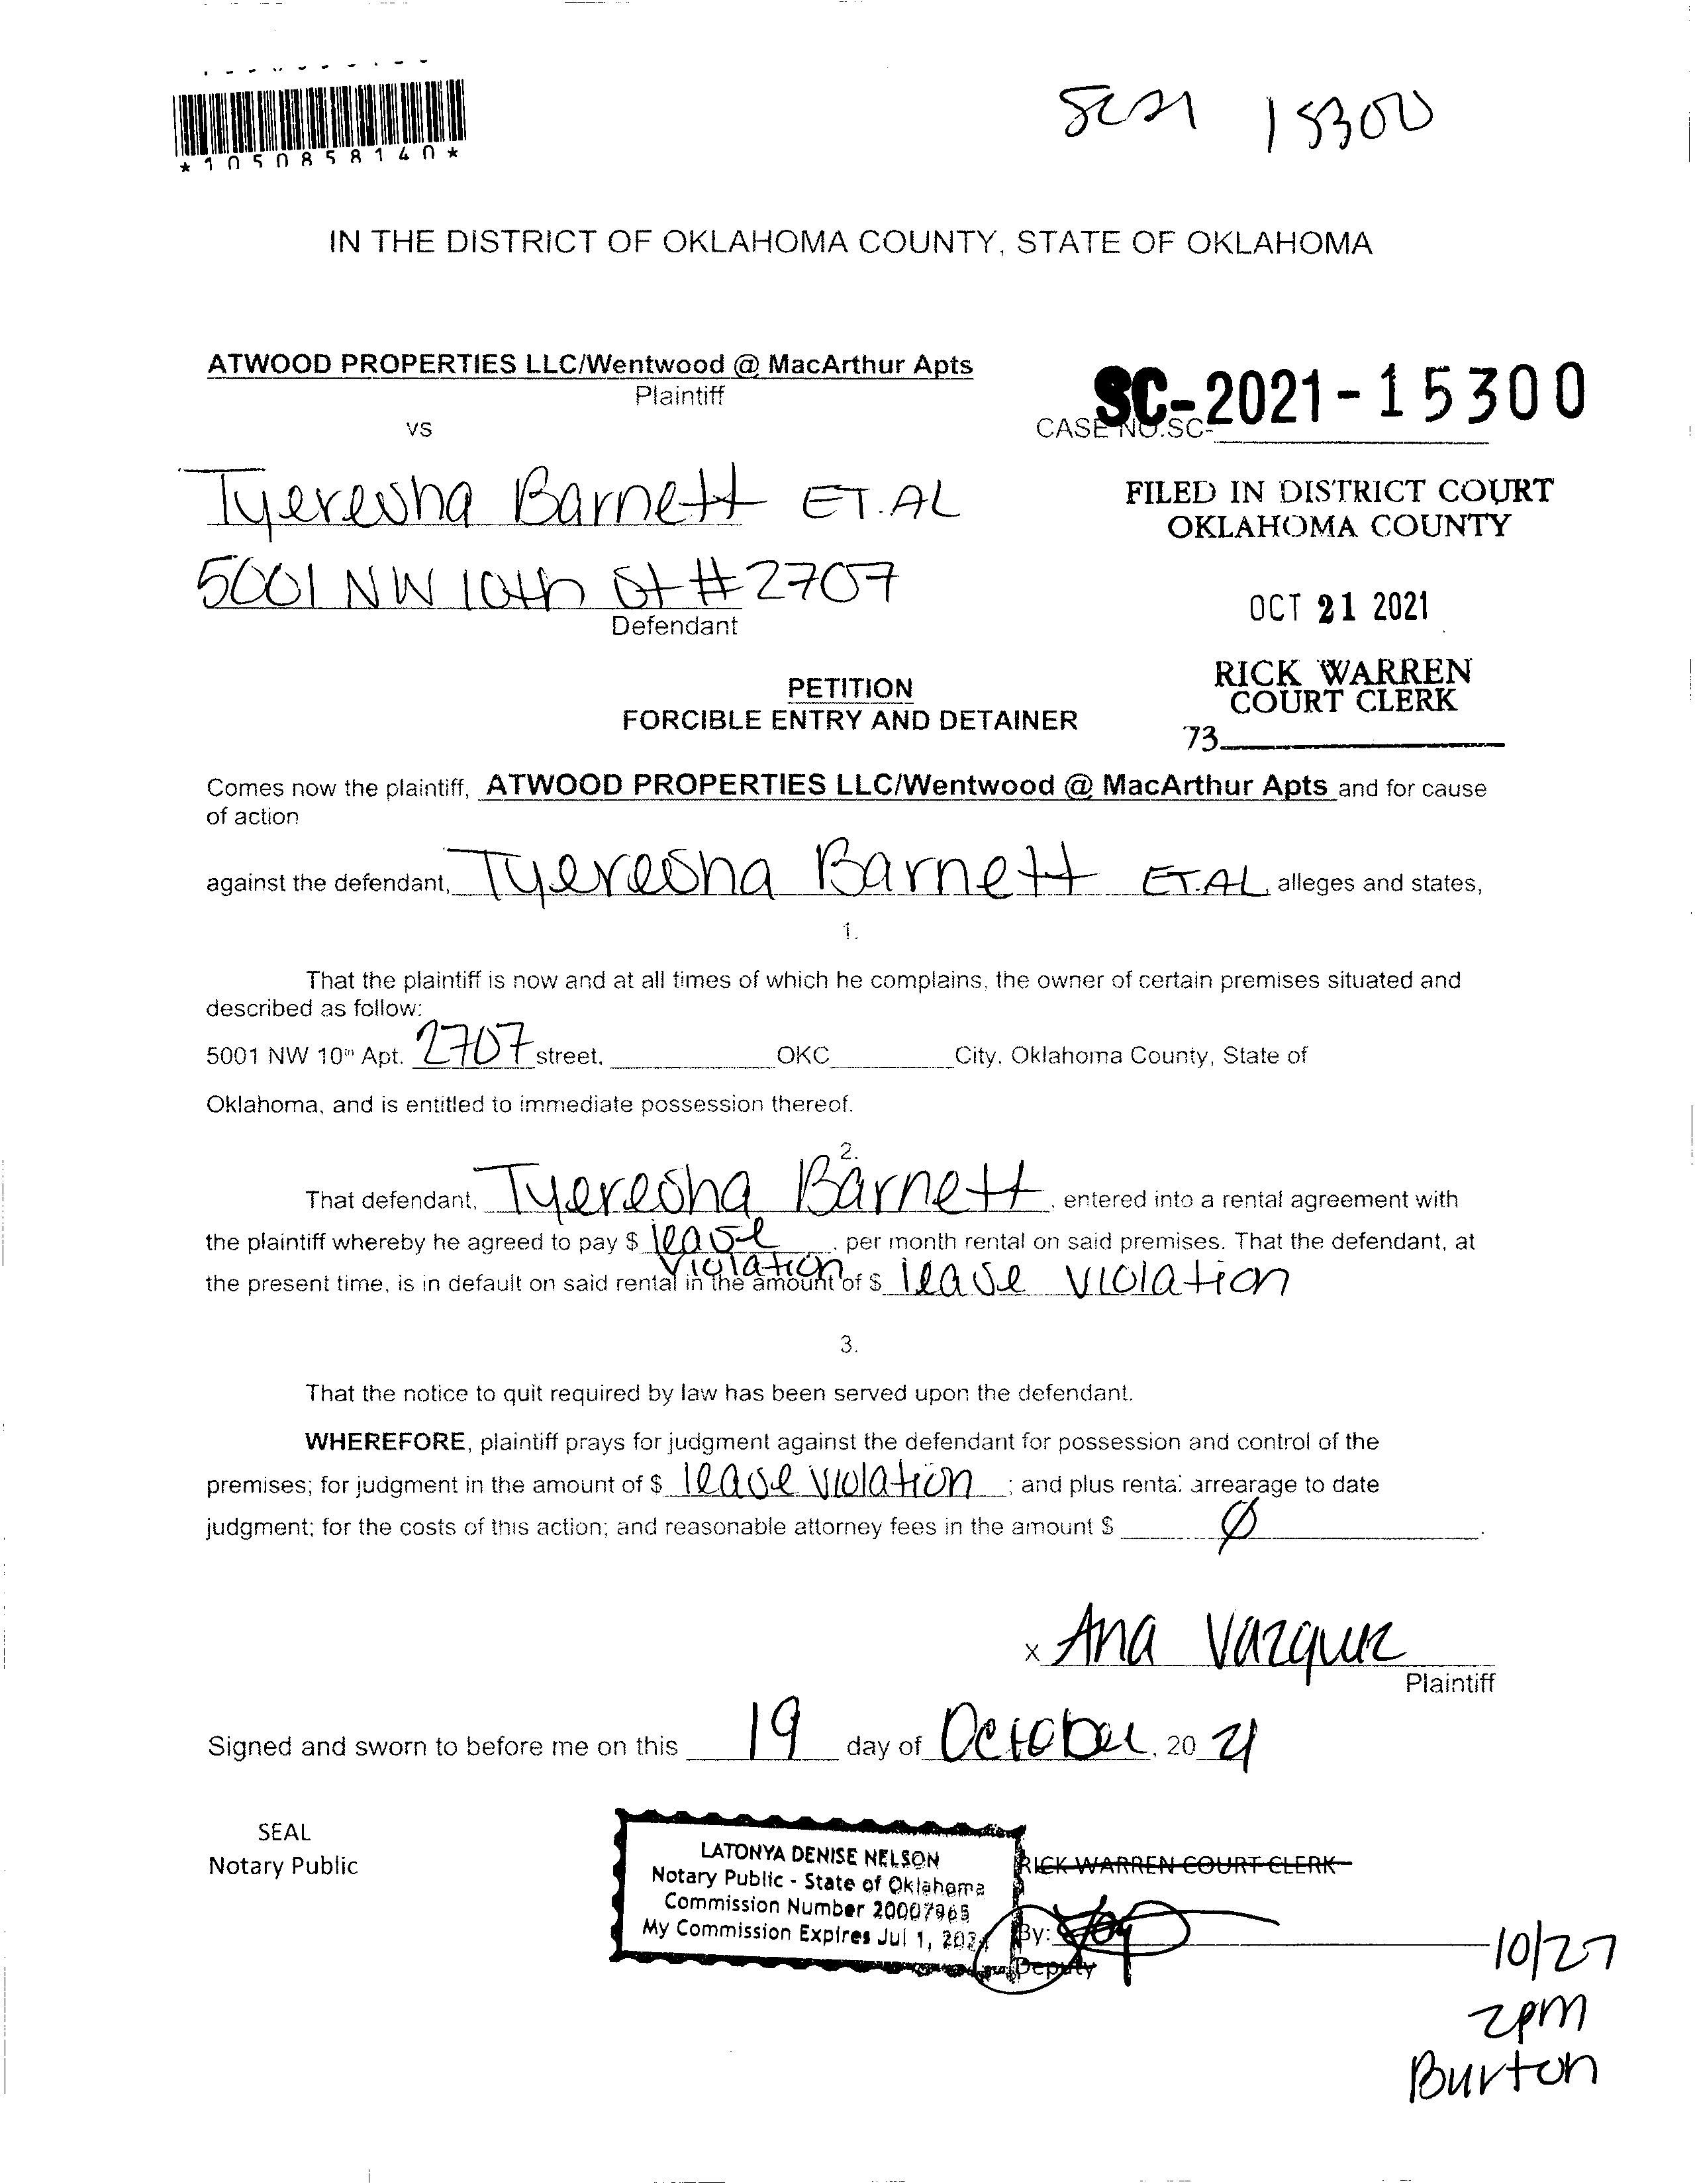 SC21 15300
*1050858140*
IN THE DISTRICT OF OKLAHOMA COUNTY, STATE OF OKLAHOMA
ATWOOD PROPERTIES LLC/Wentwood @ MacArthur Apts
Plaintiff
vs
CASE NO.SC-
SC-2021-15300
Tyeresha Barnett ET.AL
5001 NW 10th St #2707
Defendant
FILED IN DISTRICT COURT
OKLAHOMA COUNTY
OCT 21 2021
RICK WARREN
COURT CLERK
73
PETITION
FORCIBLE ENTRY AND DETAINER
Comes now the plaintiff, ATWOOD PROPERTIES LLC/Wentwood @ MacArthur Apts and for cause
of action
against the defendant, Tyeresha Barnett ET.AL alleges and states,
1.
That the plaintiff is now and at all times of which he complains, the owner of certain premises situated and
described as follow:
5001 NW 10th Apt. 2707 street, OKC City, Oklahoma County, State of
Oklahoma, and is entitled to immediate possession thereof.
2.
That defendant, Tyeresha Barnett, entered into a rental agreement with
the plaintiff whereby he agreed to pay $ lease violation, per month rental on said premises. That the defendant, at
the present time, is in default on said rental in the amount of $ lease violation
3.
That the notice to quit required by law has been served upon the defendant.
WHEREFORE, plaintiff prays for judgment against the defendant for possession and control of the
premises; for judgment in the amount of $ lease violation; and plus rental arrearage to date
judgment; for the costs of this action; and reasonable attorney fees in the amount $ Ø.
x Ana Vazquez
Plaintiff
Signed and sworn to before me on this 19 day of October, 20 21
SEAL
Notary Public
LATONYA DENISE NELSON
Notary Public - State of Oklahoma
Commission Number 20007965
My Commission Expires Jul 1, 2024
RICK WARREN COURT CLERK
By:
Deputy
10/27
2pm
Burton